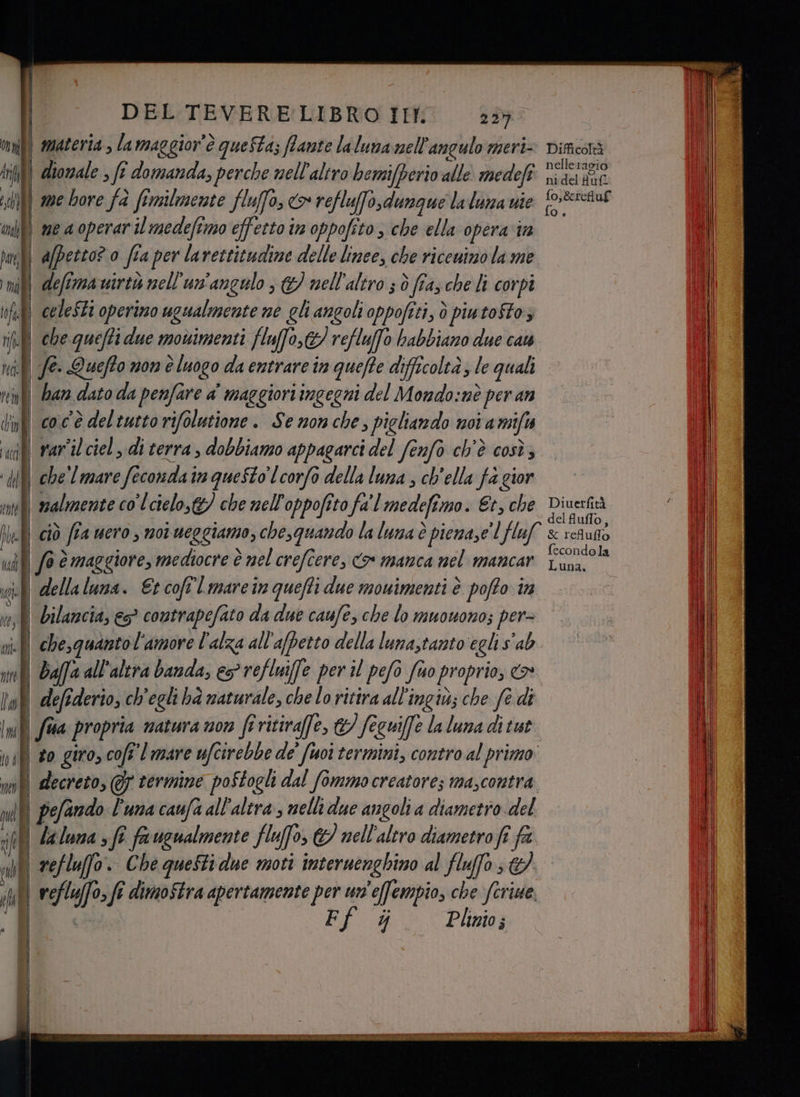 DEL TEVERE LIBRO III. 227
materia, la maggior'è questa; stante la luna nell'angulo meri-
dionale, si domanda, perche nell'altro hemisperio alle medesi
me hore fà similmente flusso, & reflusso, dunque la luna uie
ne a operar il medesimo effetto in opposito, che ella opera in
aspetto? o sia per la rettitudine delle linee, che riceuino la me
desima uirtù nell'un'angulo, & nell'altro; ò sia, che li corpi
celesti operino ugualmente ne gli angoli oppositi, ò piu tosto,
che questi due mouimenti flusso, & reflusso habbiano due cau
se. Questo non è luogo da entrare in queste difficoltà, le quali
han dato da pensare a' maggiori ingegni del Mondo: nè per an
co c'è del tutto risolutione. Se non che, pigliando noi a misu
rar'il ciel, di terra, dobbiamo appagarci del senso ch'è così,
che'l mare seconda in questo'l corso della luna, ch'ella fa gior
nalmente co'l cielo, & che nell'opposito fa'l medesimo. Et, che
ciò sia uero, noi ueggiamo, che, quando la luna è piena, e'l flus
so è maggiore, mediocre è nel crescere, & manca nel mancar
della luna. Et cosi'l mare in questi due mouimenti è posto in
bilancia, & contrapesato da due cause, che lo muouono; per-
che, quanto l'amore l'alza all'aspetto della luna, tanto egli s'ab
bassa all'altra banda, & refluisse per il peso suo proprio, &
desiderio, ch'egli hà naturale, che lo ritira all'ingiù; che se di
sua propria natura non si ritirasse, & seguisse la luna di tut
to giro, cosi'l mare uscirebbe de' suoi termini, contro al primo
decreto, & termine postogli dal sommo creatore; ma, contra
pesando l'una causa all'altra, nelli due angoli a diametro del
la luna, si fa ugualmente flusso, & nell'altro diametro si fa
reflusso. Che questi due moti interuenghino al flusso, &
reflusso, si dimostra apertamente per un'essempio, che scriue
Ff ij Plinio;
Difficoltà
nelle ragio
ni del flus-
so, & reflus
so.
Diuersità
del flusso,
& reflusso
secondo la
Luna.